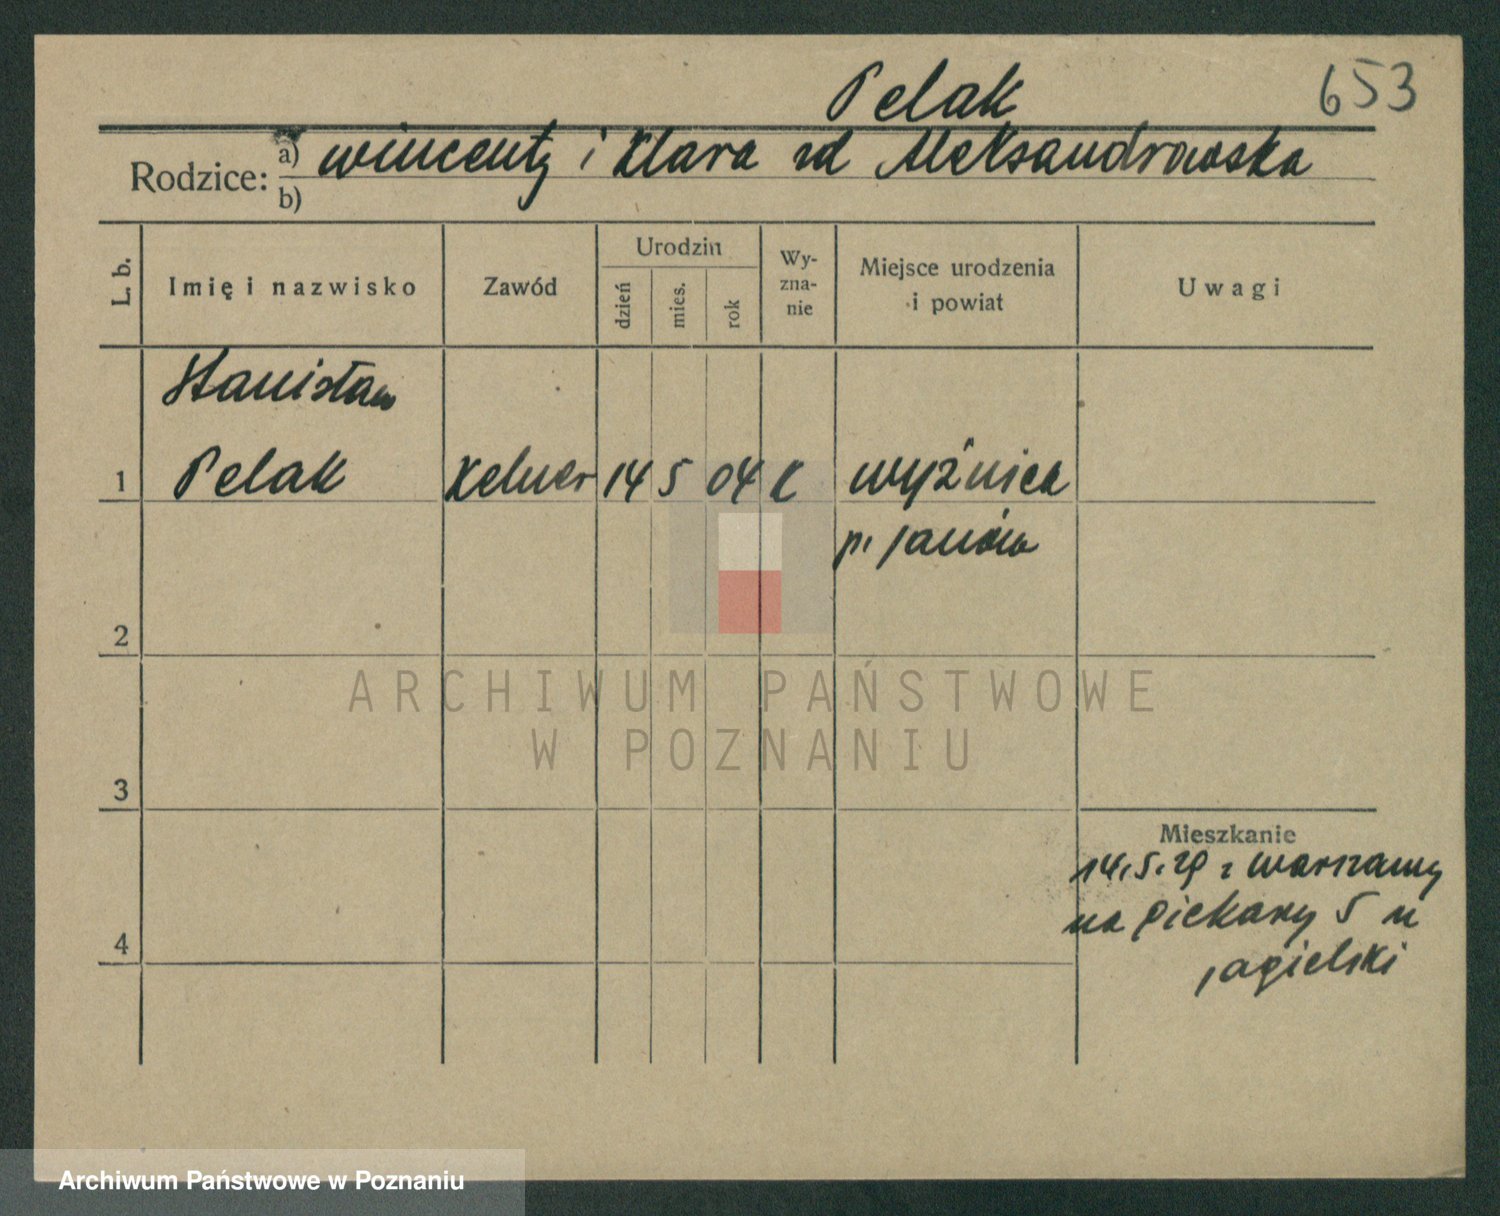 Pelak
653
Rodzice: a) Wincenty i Klara zd Aleksandrowska
b)
L. b.
Imię i nazwisko
Zawód
Urodzin
dzień
mies.
rok
Wy-
zna-
nie
Miejsce urodzenia
i powiat
Uwagi
Stanisław
1 Pelak Kelner 14 5 04 K Wyźnica
p. Janów
2
ARCHIWUM PAŃSTWOWE
W POZNANIU
3
Mieszkanie
14.5.29 z Warszawy
na Piekary 5 u
4
Jagielski
Archiwum Państwowe w Poznaniu